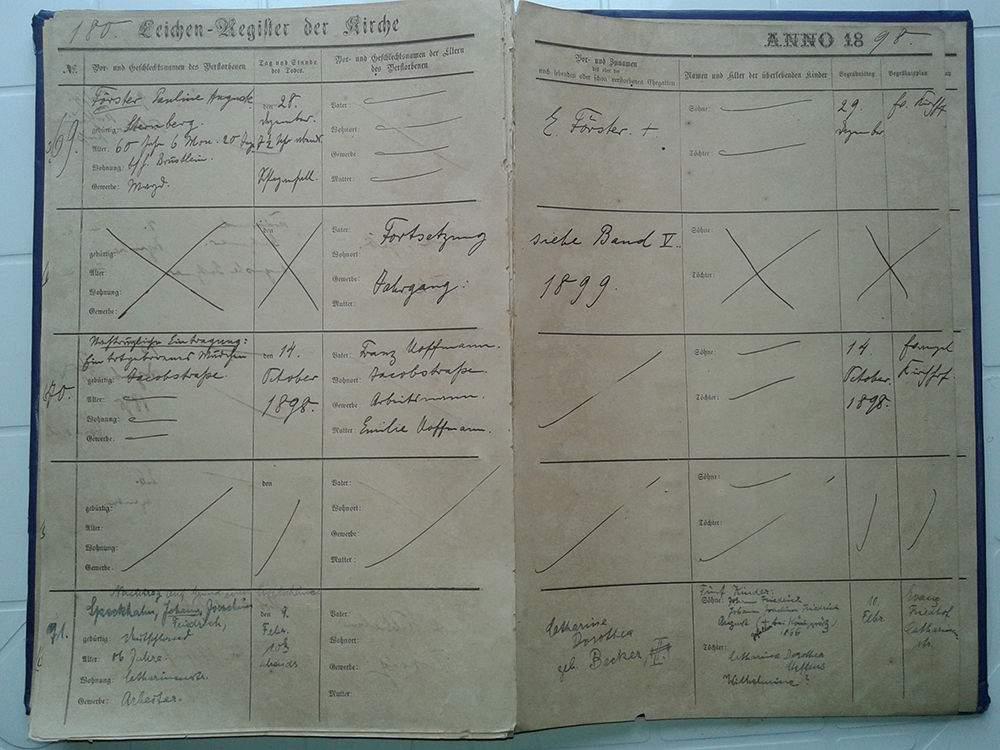 180. Leichen-Register der Kirche
ANNO 1898.
No. Vor- und Geschlechtsnamen des Verstorbenen Tag und Stunde des Todes. Vor- und Geschlechtsnamen der Eltern des Verstorbenen
Vor- und Zunamen des oder der noch lebenden oder schon verstorbenen Ehegatten Namen und Alter der überlebenden Kinder Begräbnißtag Begräbnißplan
69. Förster Pauline Auguste den 28. Vater: Söhne: 29.
gebürtig: Sternberg. Dezember. Wohnort: E. Förster. + Dezember
Alter: 60 Jahr 6 Mon. 20 Tag 7½ Uhr abends Gewerbe Töchter:
Wohnung: b/f. Brüstlein.
Gewerbe: Magd. Mutter:
den Vater: Fortsetzung siehe Band V. Söhne:
gebürtig: Wohnort:
Alter: Gewerbe Jahrgang: 1899. Töchter:
Wohnung:
Gewerbe: Mutter:
Nachträgliche Eintragung:
70. Ein totgeborenes Mädchen den 14. Vater: Franz Hoffmann. Söhne: 14.
gebürtig: Jacobstraße October Wohnort: Jacobstraße. October Kirchhof.
Alter: 1898. Gewerbe Arbeitsmann. Töchter: 1898.
Wohnung:
Gewerbe: Mutter: Emilie Hoffmann.
den Vater: Söhne:
gebürtig: Wohnort:
Alter: Gewerbe Töchter:
Wohnung:
Gewerbe: Mutter:
Nachtrag
71. Speckhahn, Johann, Joachim den 9. Vater: Fünf Kinder:
Friedrich, Febr. Catharina Söhne: Johann Friedrich 10.
gebürtig: Wohnort: Dorothea Johann Joachim Friedrich Febr. Friedhof
Alter: 86 Jahre abends Gewerbe: geb. Becker, August 1866 Catharinen
Wohnung: Catharinenstr. Töchter: Catharina Dorothea str.
Gewerbe: Arbeiter. Mutter: Wilhelmine?